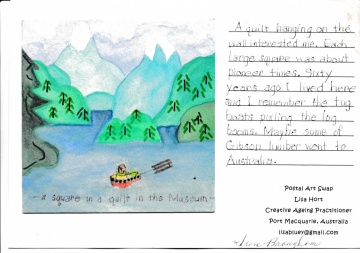 A quilt hanging on the
wall interested me. Each
large square was about
pioneer times. Sixty
years ago I lived here
and I remember the tug
boats pulling the log
booms. Maybe some of
Gibson lumber went to
Australia.
- a square in a quilt in the Museum -
Postal Art Swap
Lisa Hort
Creative Ageing Practitioner
Port Macquarie, Australia
lisabluey@gmail.com